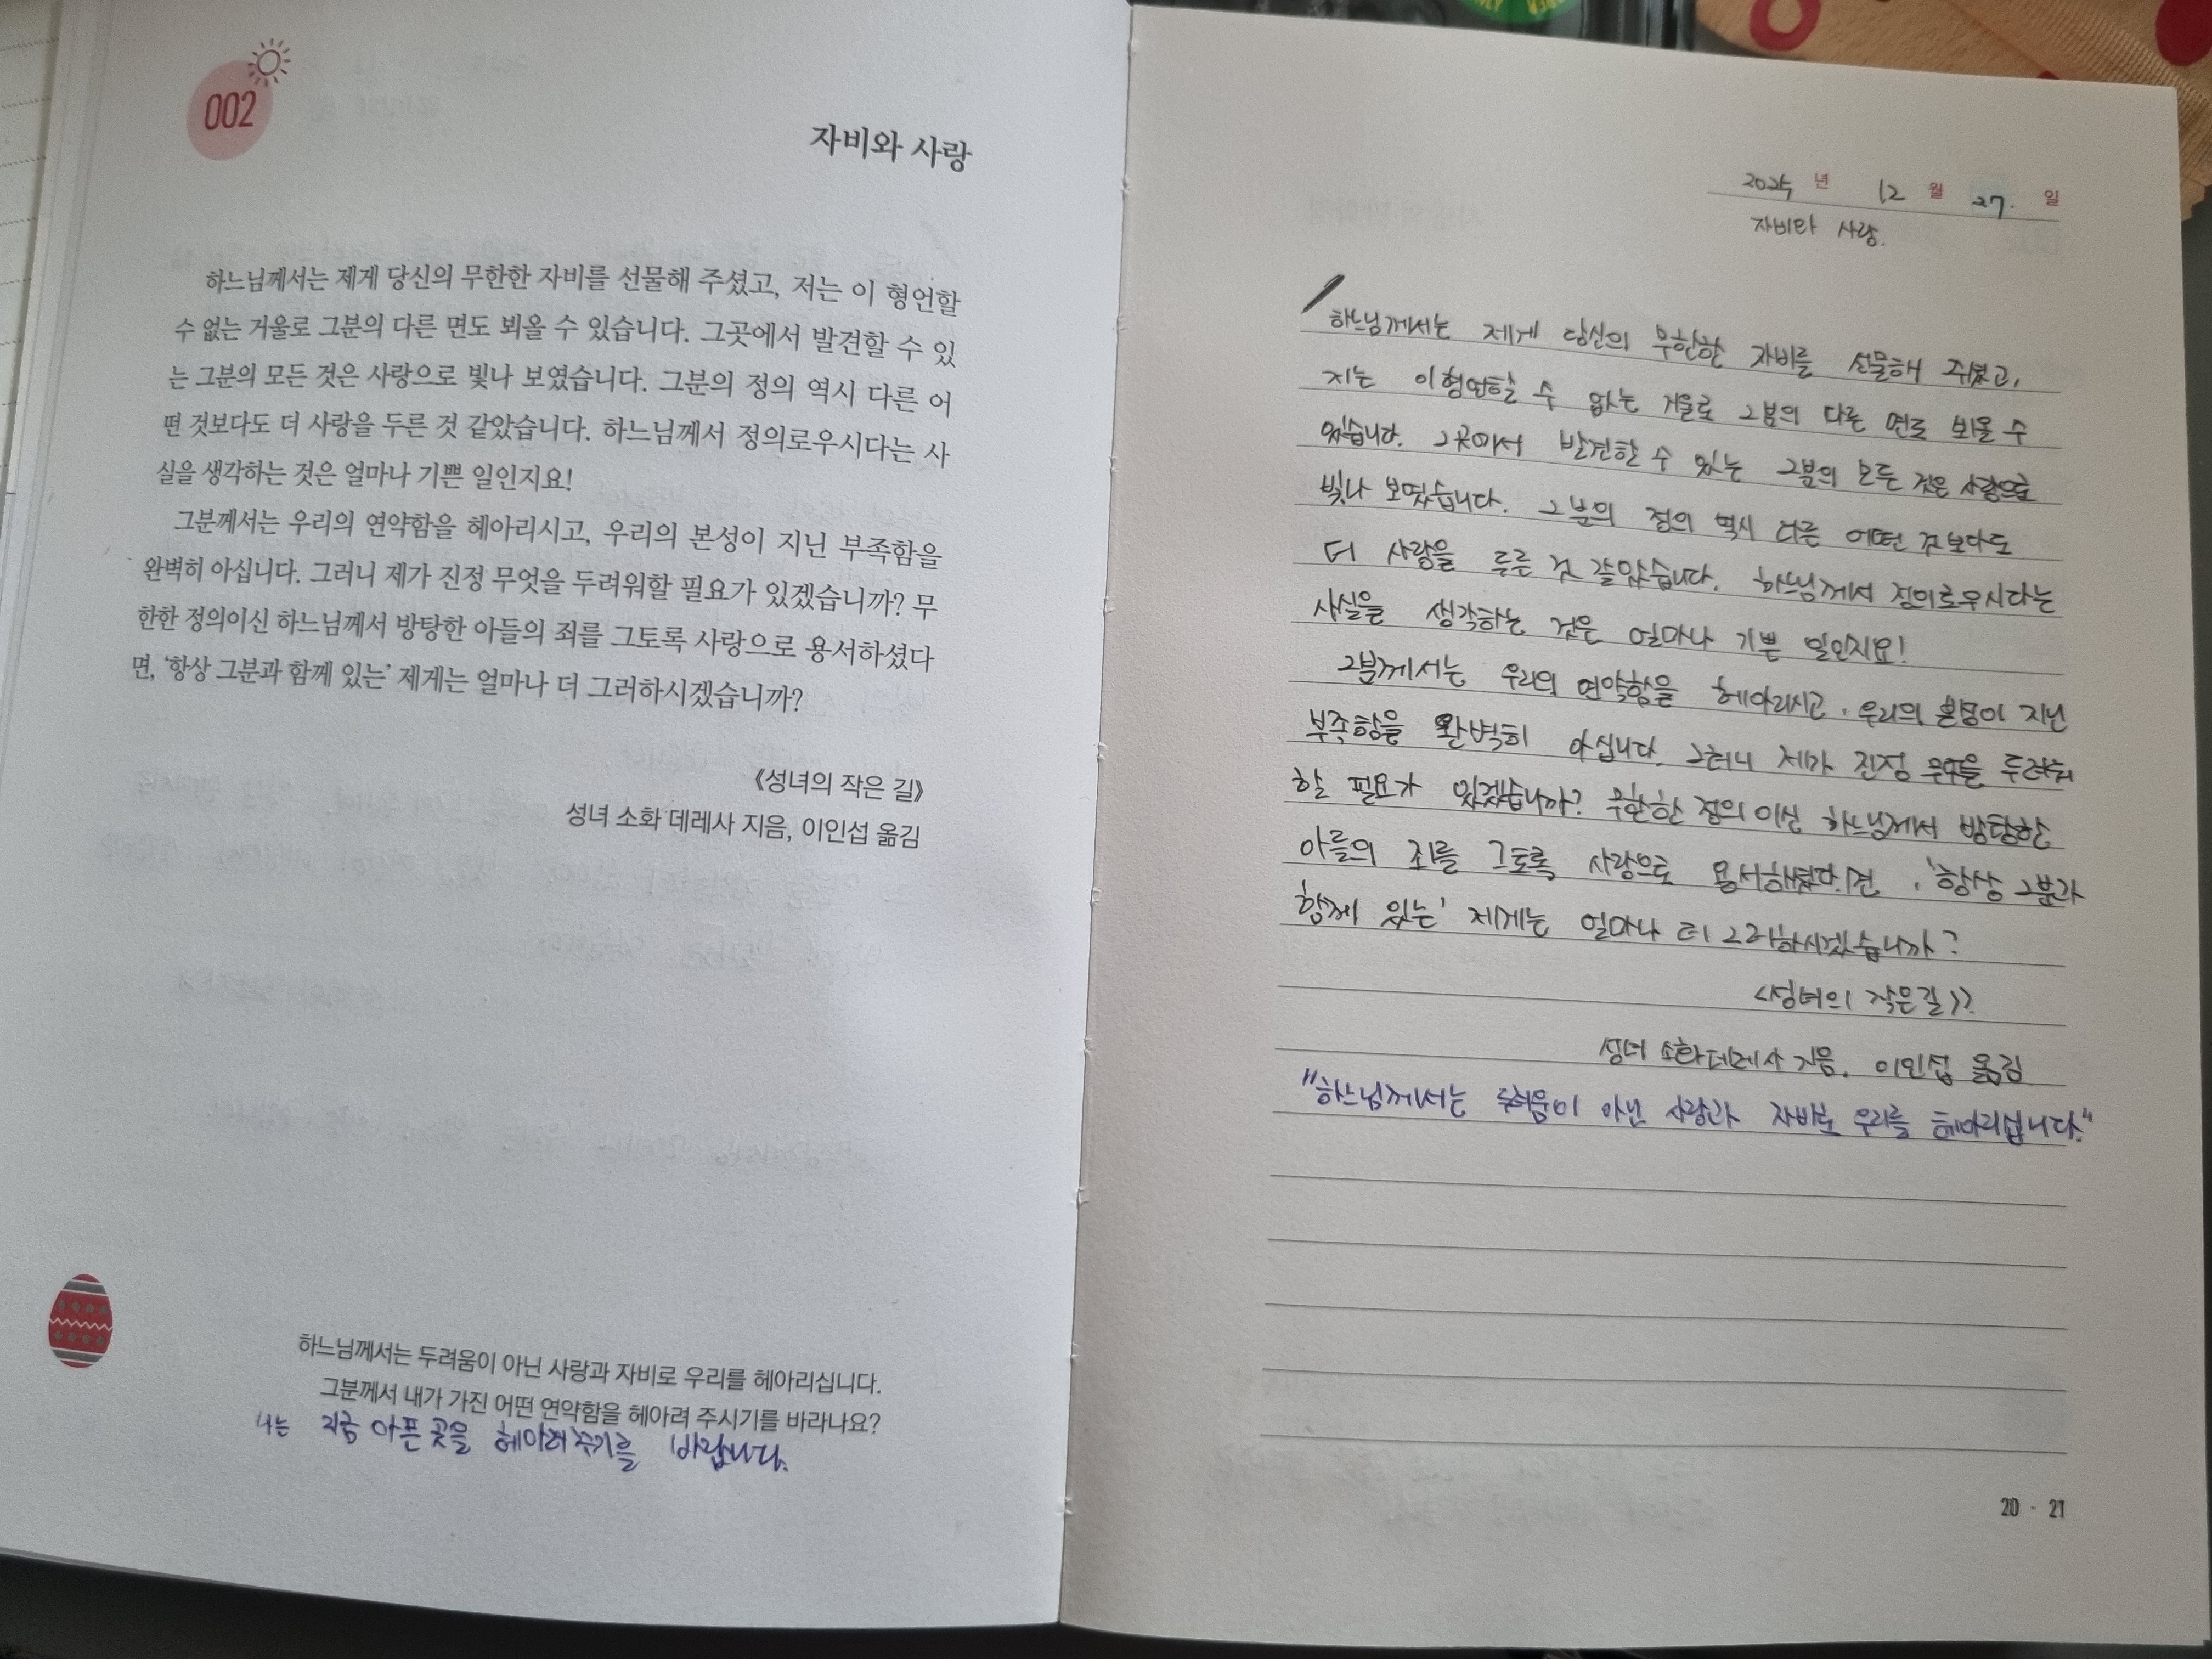 002
자비와 사랑
하느님께서는 제게 당신의 무한한 자비를 선물해 주셨고, 저는 이 형언할
수 없는 거울로 그분의 다른 면도 뵈올 수 있습니다. 그곳에서 발견할 수 있
는 그분의 모든 것은 사랑으로 빛나 보였습니다. 그분의 정의 역시 다른 어
떤 것보다도 더 사랑을 두른 것 같았습니다. 하느님께서 정의로우시다는 사
실을 생각하는 것은 얼마나 기쁜 일인지요!
그분께서는 우리의 연약함을 헤아리시고, 우리의 본성이 지닌 부족함을
완벽히 아십니다. 그러니 제가 진정 무엇을 두려워할 필요가 있겠습니까? 무
한한 정의이신 하느님께서 방탕한 아들의 죄를 그토록 사랑으로 용서하셨다
면, ‘항상 그분과 함께 있는’ 제게는 얼마나 더 그러하시겠습니까?
《성녀의 작은 길》
성녀 소화 데레사 지음, 이인섭 옮김
하느님께서는 두려움이 아닌 사랑과 자비로 우리를 헤아리십니다.
그분께서 내가 가진 어떤 연약함을 헤아려 주시기를 바라나요?
나는 지금 아픈 곳을 헤아려주기를 바랍니다.
2025 년 12 월 27. 일
자비와 사랑.
하느님께서는 제게 당신의 무한한 자비를 선물해 주셨고,
저는 이 형언할 수 없는 거울로 그분의 다른 면도 뵈올 수
있습니다. 그곳에서 발견할 수 있는 그분의 모든 것은 사랑으로
빛나 보였습니다. 그분의 정의 역시 다른 어떤 것보다도
더 사랑을 두른 것 같았습니다. 하느님께서 정의로우시다는
사실을 생각하는 것은 얼마나 기쁜 일인지요!
그분께서는 우리의 연약함을 헤아리시고, 우리의 본성이 지닌
부족함을 완벽히 아십니다. 그러니 제가 진정 무엇을 두려워
할 필요가 있겠습니까? 무한한 정의이신 하느님께서 방탕한
아들의 죄를 그토록 사랑으로 용서하셨다면, '항상 그분과
함께 있는' 제게는 얼마나 더 그러하시겠습니까?
<성녀의 작은길>>
성녀 소화데레사 지음. 이인섭 옮김
"하느님께서는 두려움이 아닌 사랑과 자비로 우리를 헤아리십니다."
20 · 21